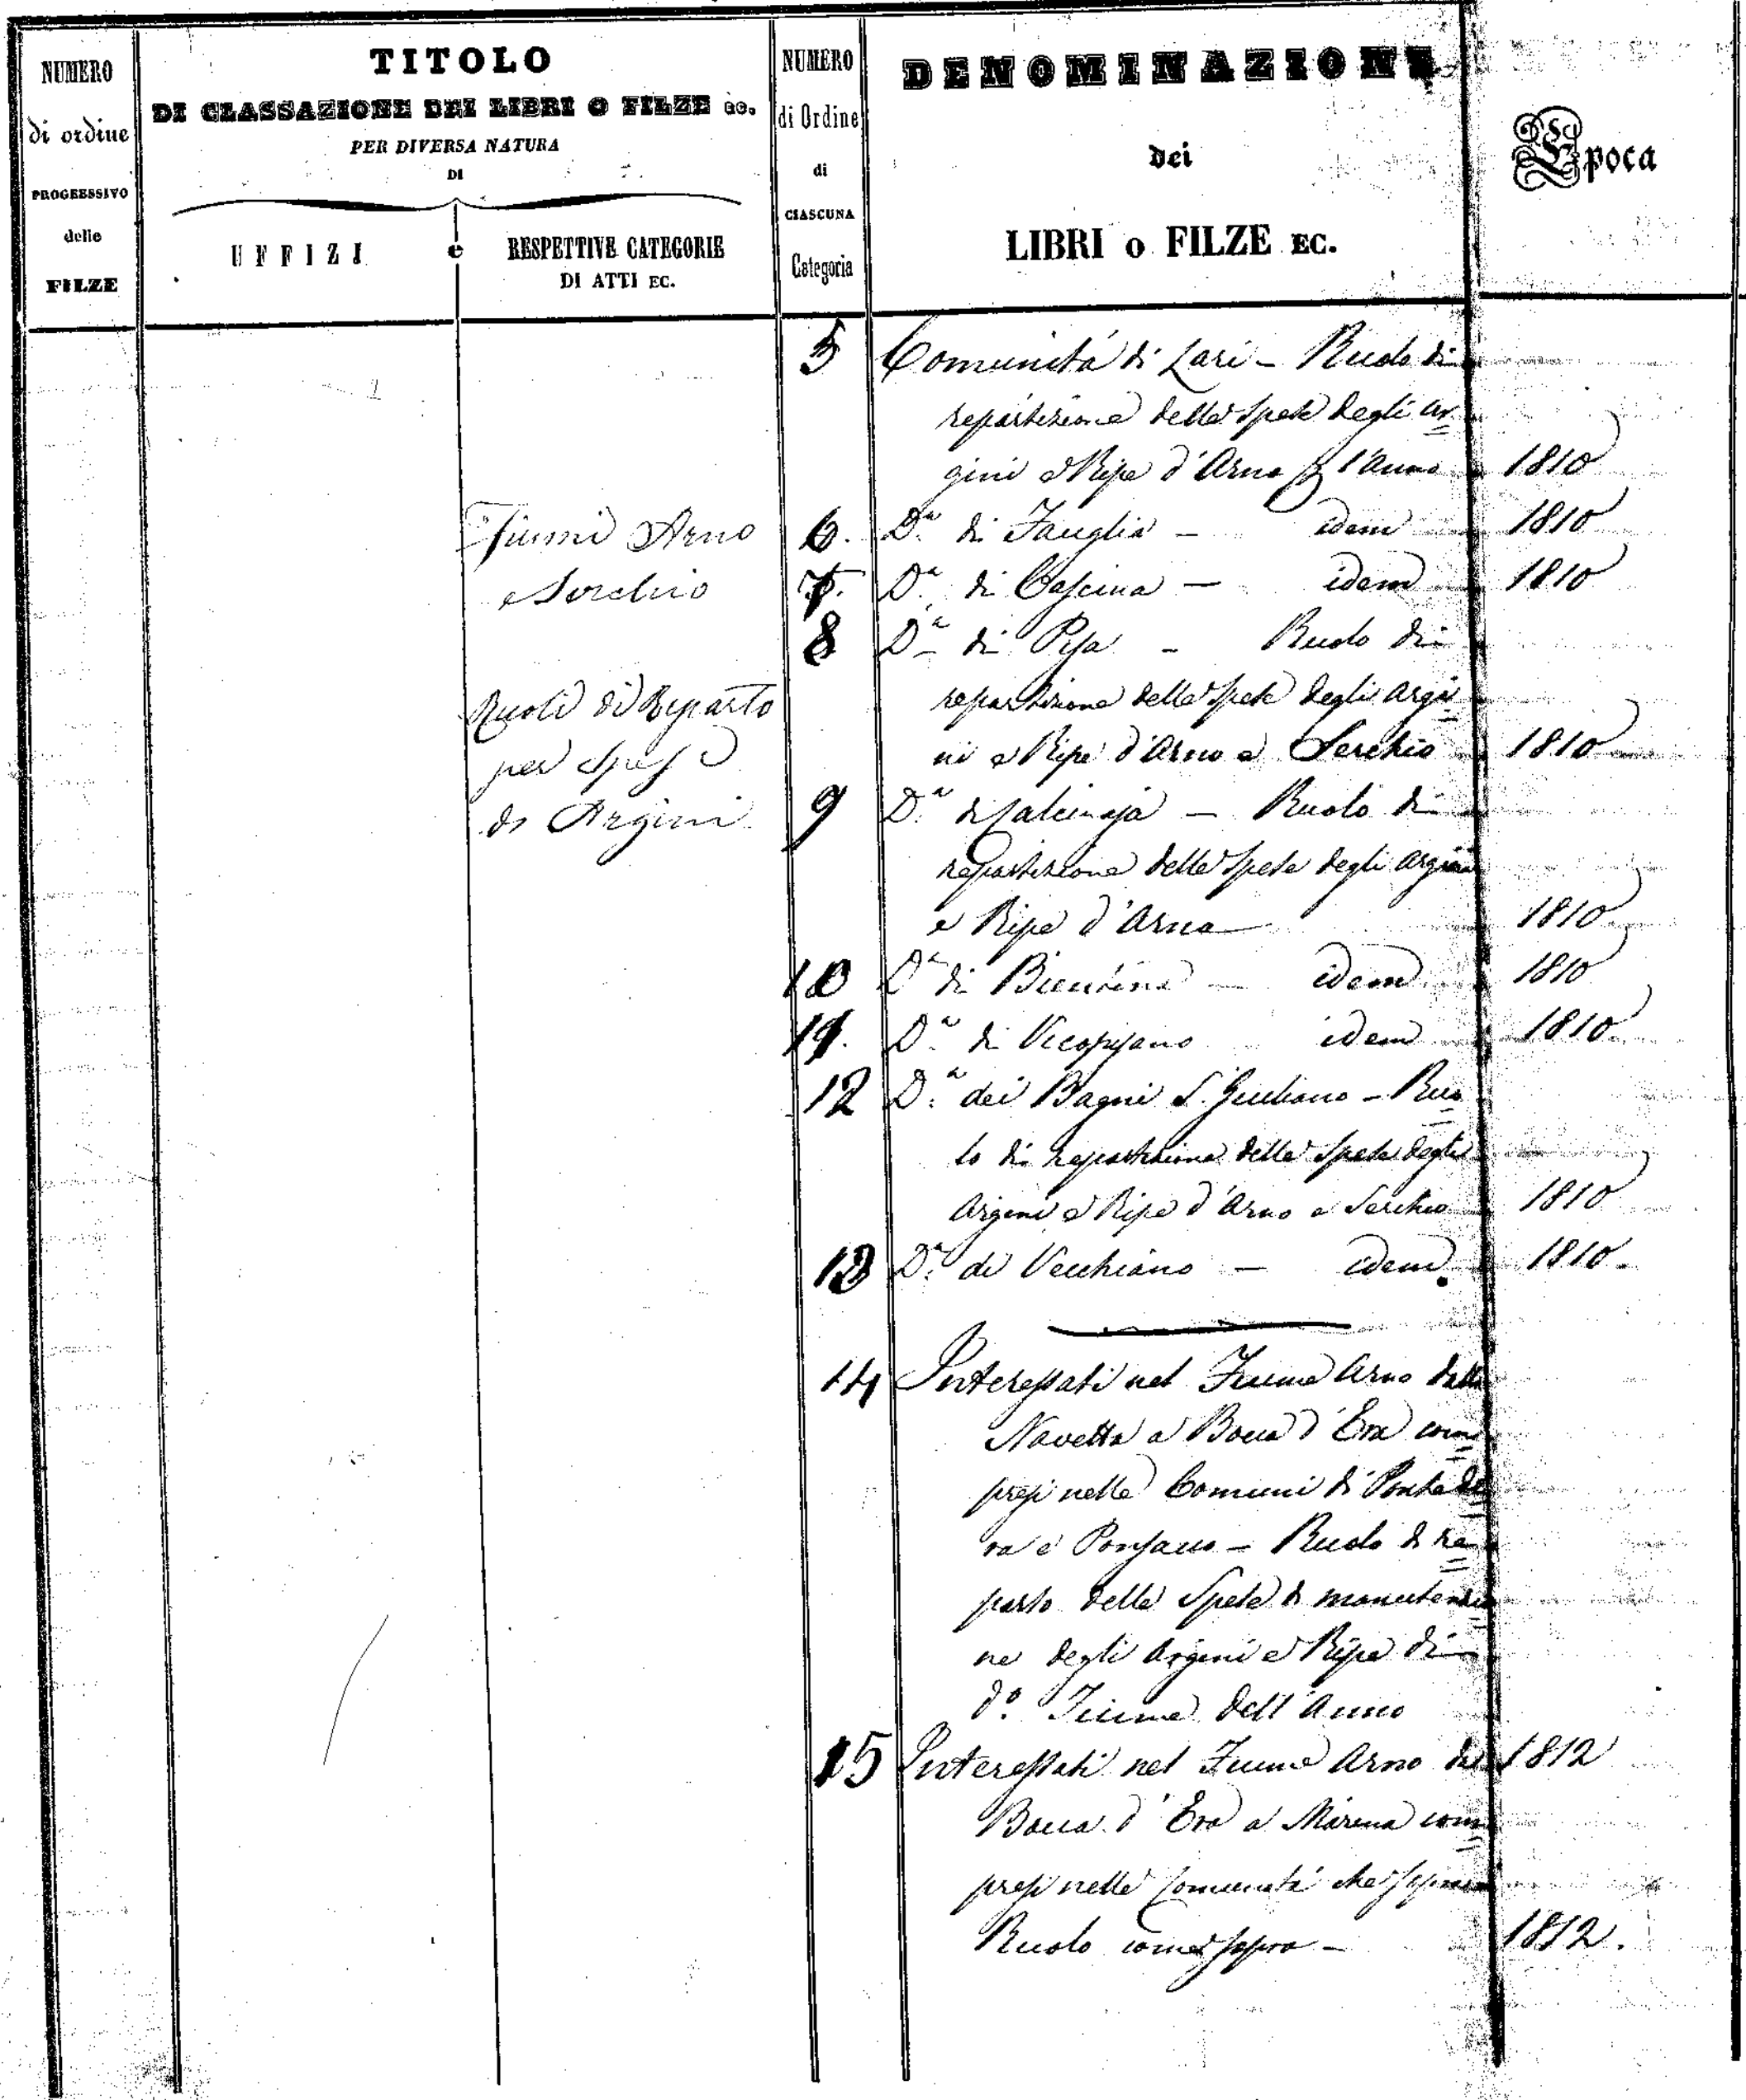 NUMERO
di ordine
PROGRESSIVO
delle
FILZE
TITOLO
DI CLASSAZIONE DEI LIBRI O FILZE ec.
PER DIVERSA NATURA
DI
UFFIZI e RESPETTIVE CATEGORIE
DI ATTI EC.
NUMERO
di Ordine
di
CIASCUNA
Categoria
DENOMINAZIONE
dei
LIBRI o FILZE EC.
Epoca
Fiumi Arno
e Serchio
Ruoli di Reparto
per Spese
di Argini
5 Comunità di Lari - Ruolo di
repartizione delle Spese degli Ar=
gini e Ripe d'Arno p l'Anno 1810
6. D.a di Fauglia - idem 1810
7. D.a di Cascina - idem 1810
8 D.a di Pisa - Ruolo di
repartizione delle Spese degli Argi=
ni e Ripe d'Arno e Serchio 1810
9 D.a di Calcinaja - Ruolo di
repartizione delle Spese degli Argini
e Ripe d'Arno 1810
10 D.a di Bientina - idem 1810
11. D.a di Vicopisano idem 1810
12 D.a dei Bagni S. Giuliano - Ruo=
lo di repartizione delle Spese degli
Argini e Ripe d'Arno e Serchio 1810
13 D.a di Vecchiano - idem. 1810.
14 Interessati nel Fiume Arno dalla
Navetta a Bocca d'Era com=
presi nelle Comuni di Pontade=
ra e Ponsacco - Ruolo di re=
parto delle Spese di manutenzio=
ne degli Argini e Ripe di
d.o Fiume dell'Anno
15 Interessati nel Fiume Arno da 1812
Bocca d'Era a Marina com=
presi nelle Comunità che
Ruolo come sopra - 1812.